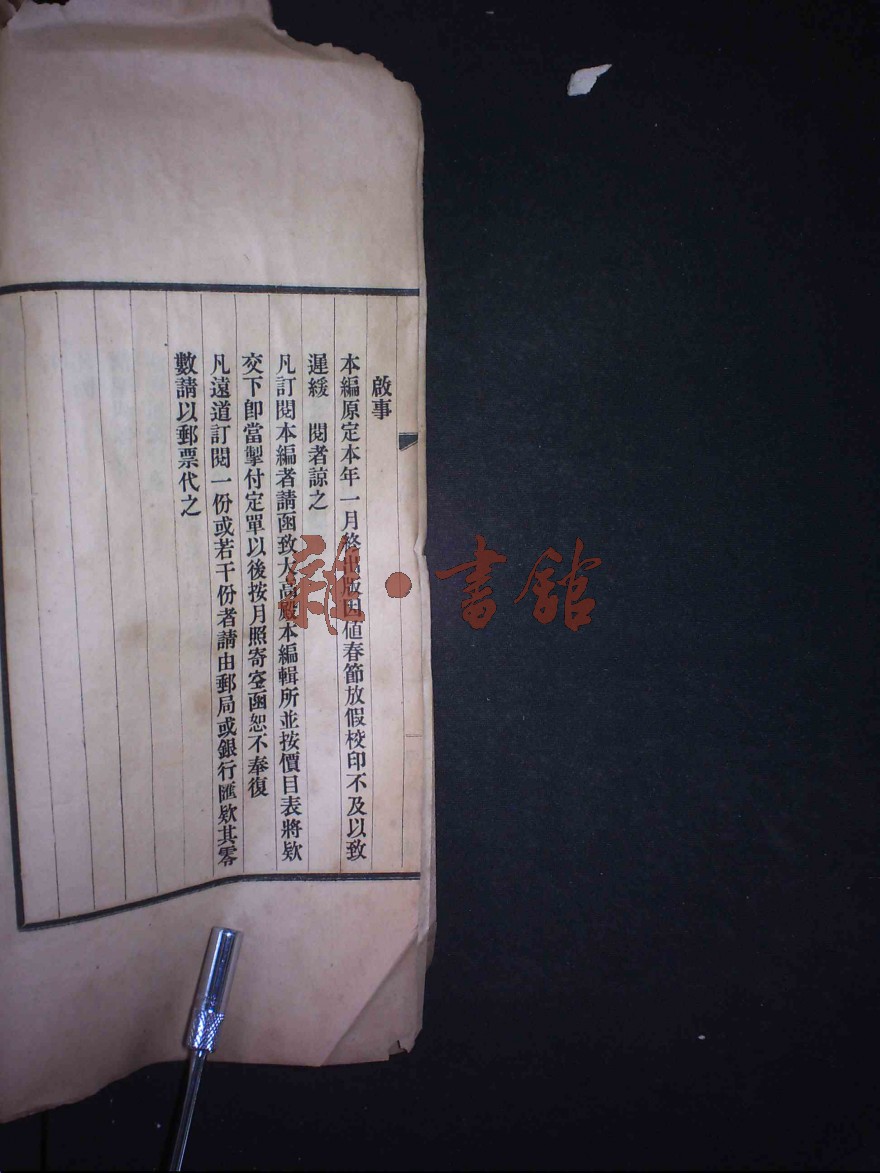 啟事
本編原定本年一月終出版因値春節放假校印不及以致
遲緩　閱者諒之
凡訂閱本編者請函致大高殿本編輯所並按價目表將欵
交下卽當掣付定單以後按月照寄空函恕不奉復
凡遠道訂閱一份或若干份者請由郵局或銀行匯欵其零
數請以郵票代之
雜·書館